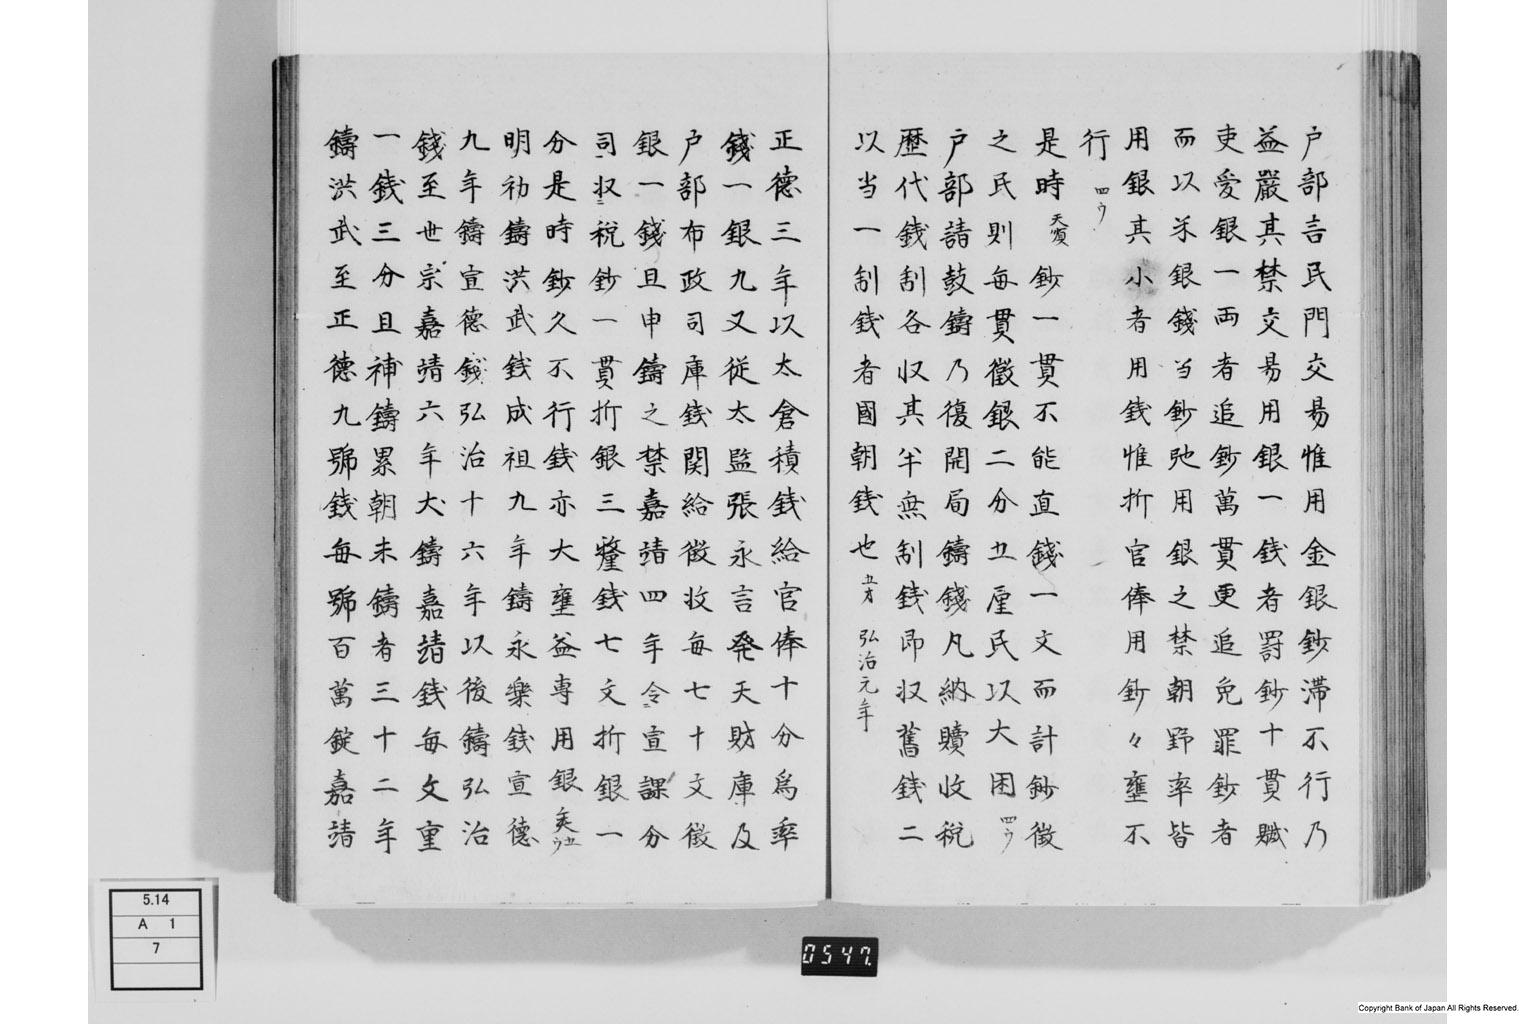 户部言民門交易惟用金銀鈔滞不行乃
益嚴其禁交易用銀一銭者罰鈔十貫賍
吏愛銀一両者追鈔萬貫更追免罪鈔者
而以米銀錢当鈔弛用銀之禁朝野率皆
用銀其小者用銭惟折官俸用鈔々壅不
行 四ウ
是時 天順 鈔一貫不能直錢一文而計鈔徴
之民則毎貫徴銀二分五厘民以大困 四ウ
戸部請鼓鑄乃復開局鑄錢凡納贖收税
歴代銭刮各収其半無刮銭即収舊銭二
以当一刮銭者國朝銭也 五才 弘治元年
正德三年以太倉積銭給官俸十分為率
錢一銀九又従太監張永言発天財庫及
户部布政司庫銭関給徴收毎七十文徴
銀一錢且申鑄之禁嘉靖四年令宣課分
司収税鈔一貫折銀三釐銭七文折銀一
分是時鈔久不行銭亦大壅益専用銀矣 五ウ
明初鑄洪武銭成祖九年鑄永樂銭宣德
九年鑄宣德銭弘治十六年以後鑄弘治
錢至世宗嘉靖六年大鑄嘉靖銭毎文重
一銭三分且補鑄累朝未鑄者三十二年
鑄洪武至正德九號銭毎號百萬錠嘉靖
5.14
A 1
7
0547.
Copyright Bank of Japan All Rights Reserved.